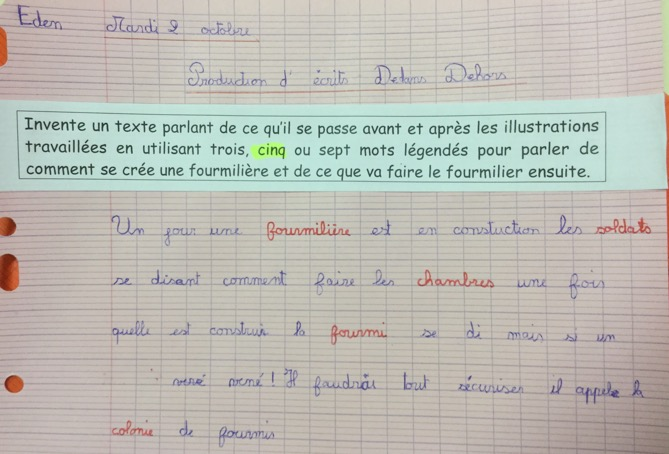 Eden Mardi 2 octobre
Production d'écrits Dedans Dehors
Invente un texte parlant de ce qu'il se passe avant et après les illustrations
travaillées en utilisant trois, cinq ou sept mots légendés pour parler de
comment se crée une fourmilière et de ce que va faire le fourmilier ensuite.
Un jour une fourmilière est en constuction les soldats
se disant comment faire les chambres une fois
quelle est construit la fourmi se di mais si un
mené! Il faudrai tout sécuriser il appele la
colonie de fourmis